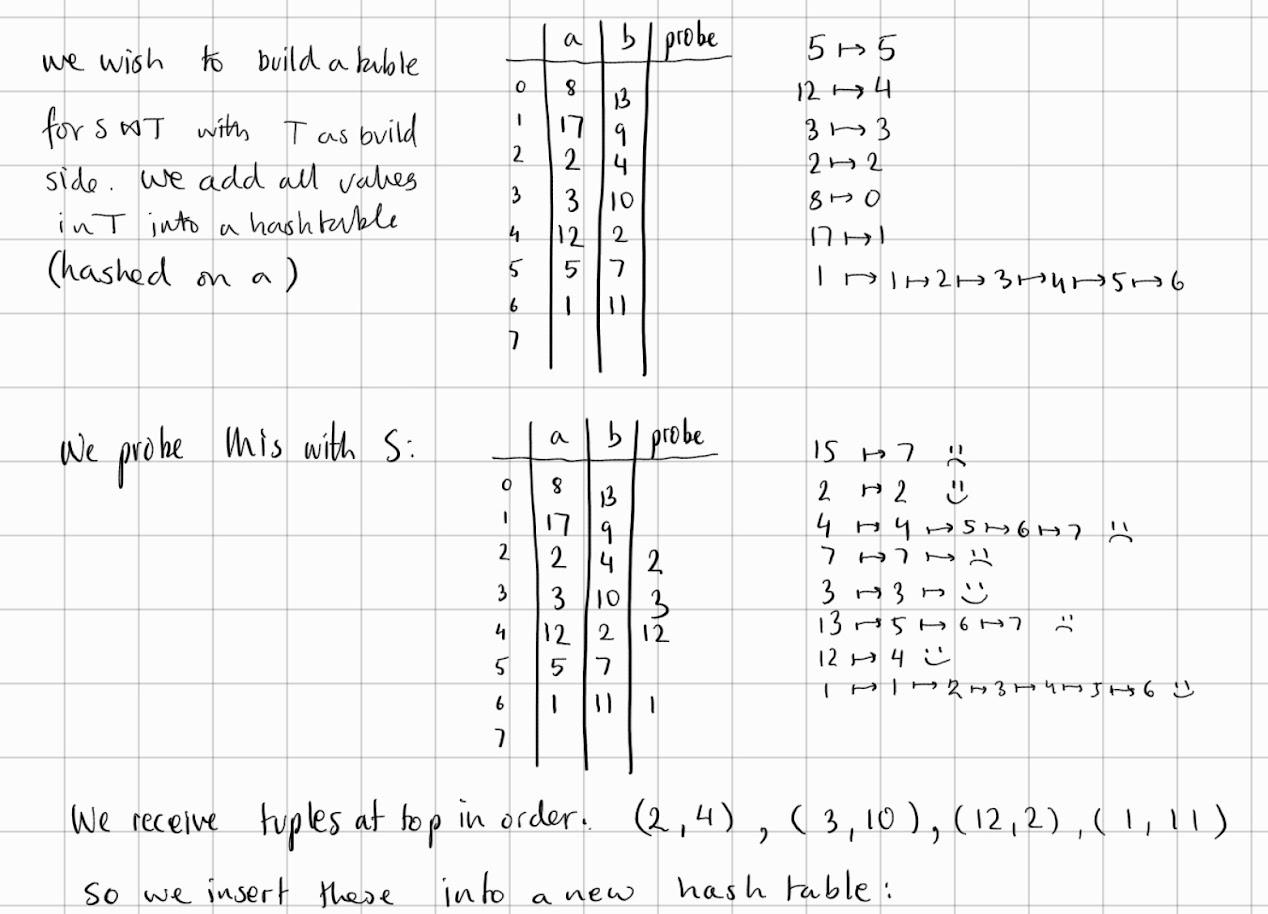 we wish to build a table
for S ⋈ T with T as build
side. we add all values
in T into a hash table
(hashed on a)
a b probe
0 8 13
1 17 9
2 2 4
3 3 10
4 12 2
5 5 7
6 1 11
7
5 ↦ 5
12 ↦ 4
3 ↦ 3
2 ↦ 2
8 ↦ 0
17 ↦ 1
1 ↦ 1 ↦ 2 ↦ 3 ↦ 4 ↦ 5 ↦ 6
We probe this with S:
a b probe
0 8 13
1 17 9
2 2 4 2
3 3 10 3
4 12 2 12
5 5 7
6 1 11 1
7
15 ↦ 7 ☹
2 ↦ 2 ☺
4 ↦ 4 ↦ 5 ↦ 6 ↦ 7 ☹
7 ↦ 7 ↦ ☹
3 ↦ 3 ↦ ☺
13 ↦ 5 ↦ 6 ↦ 7 ☹
12 ↦ 4 ☺
1 ↦ 1 ↦ 2 ↦ 3 ↦ 4 ↦ 5 ↦ 6 ☺
We receive tuples at top in order: (2,4), (3,10), (12,2), (1,11)
so we insert these into a new hash table: